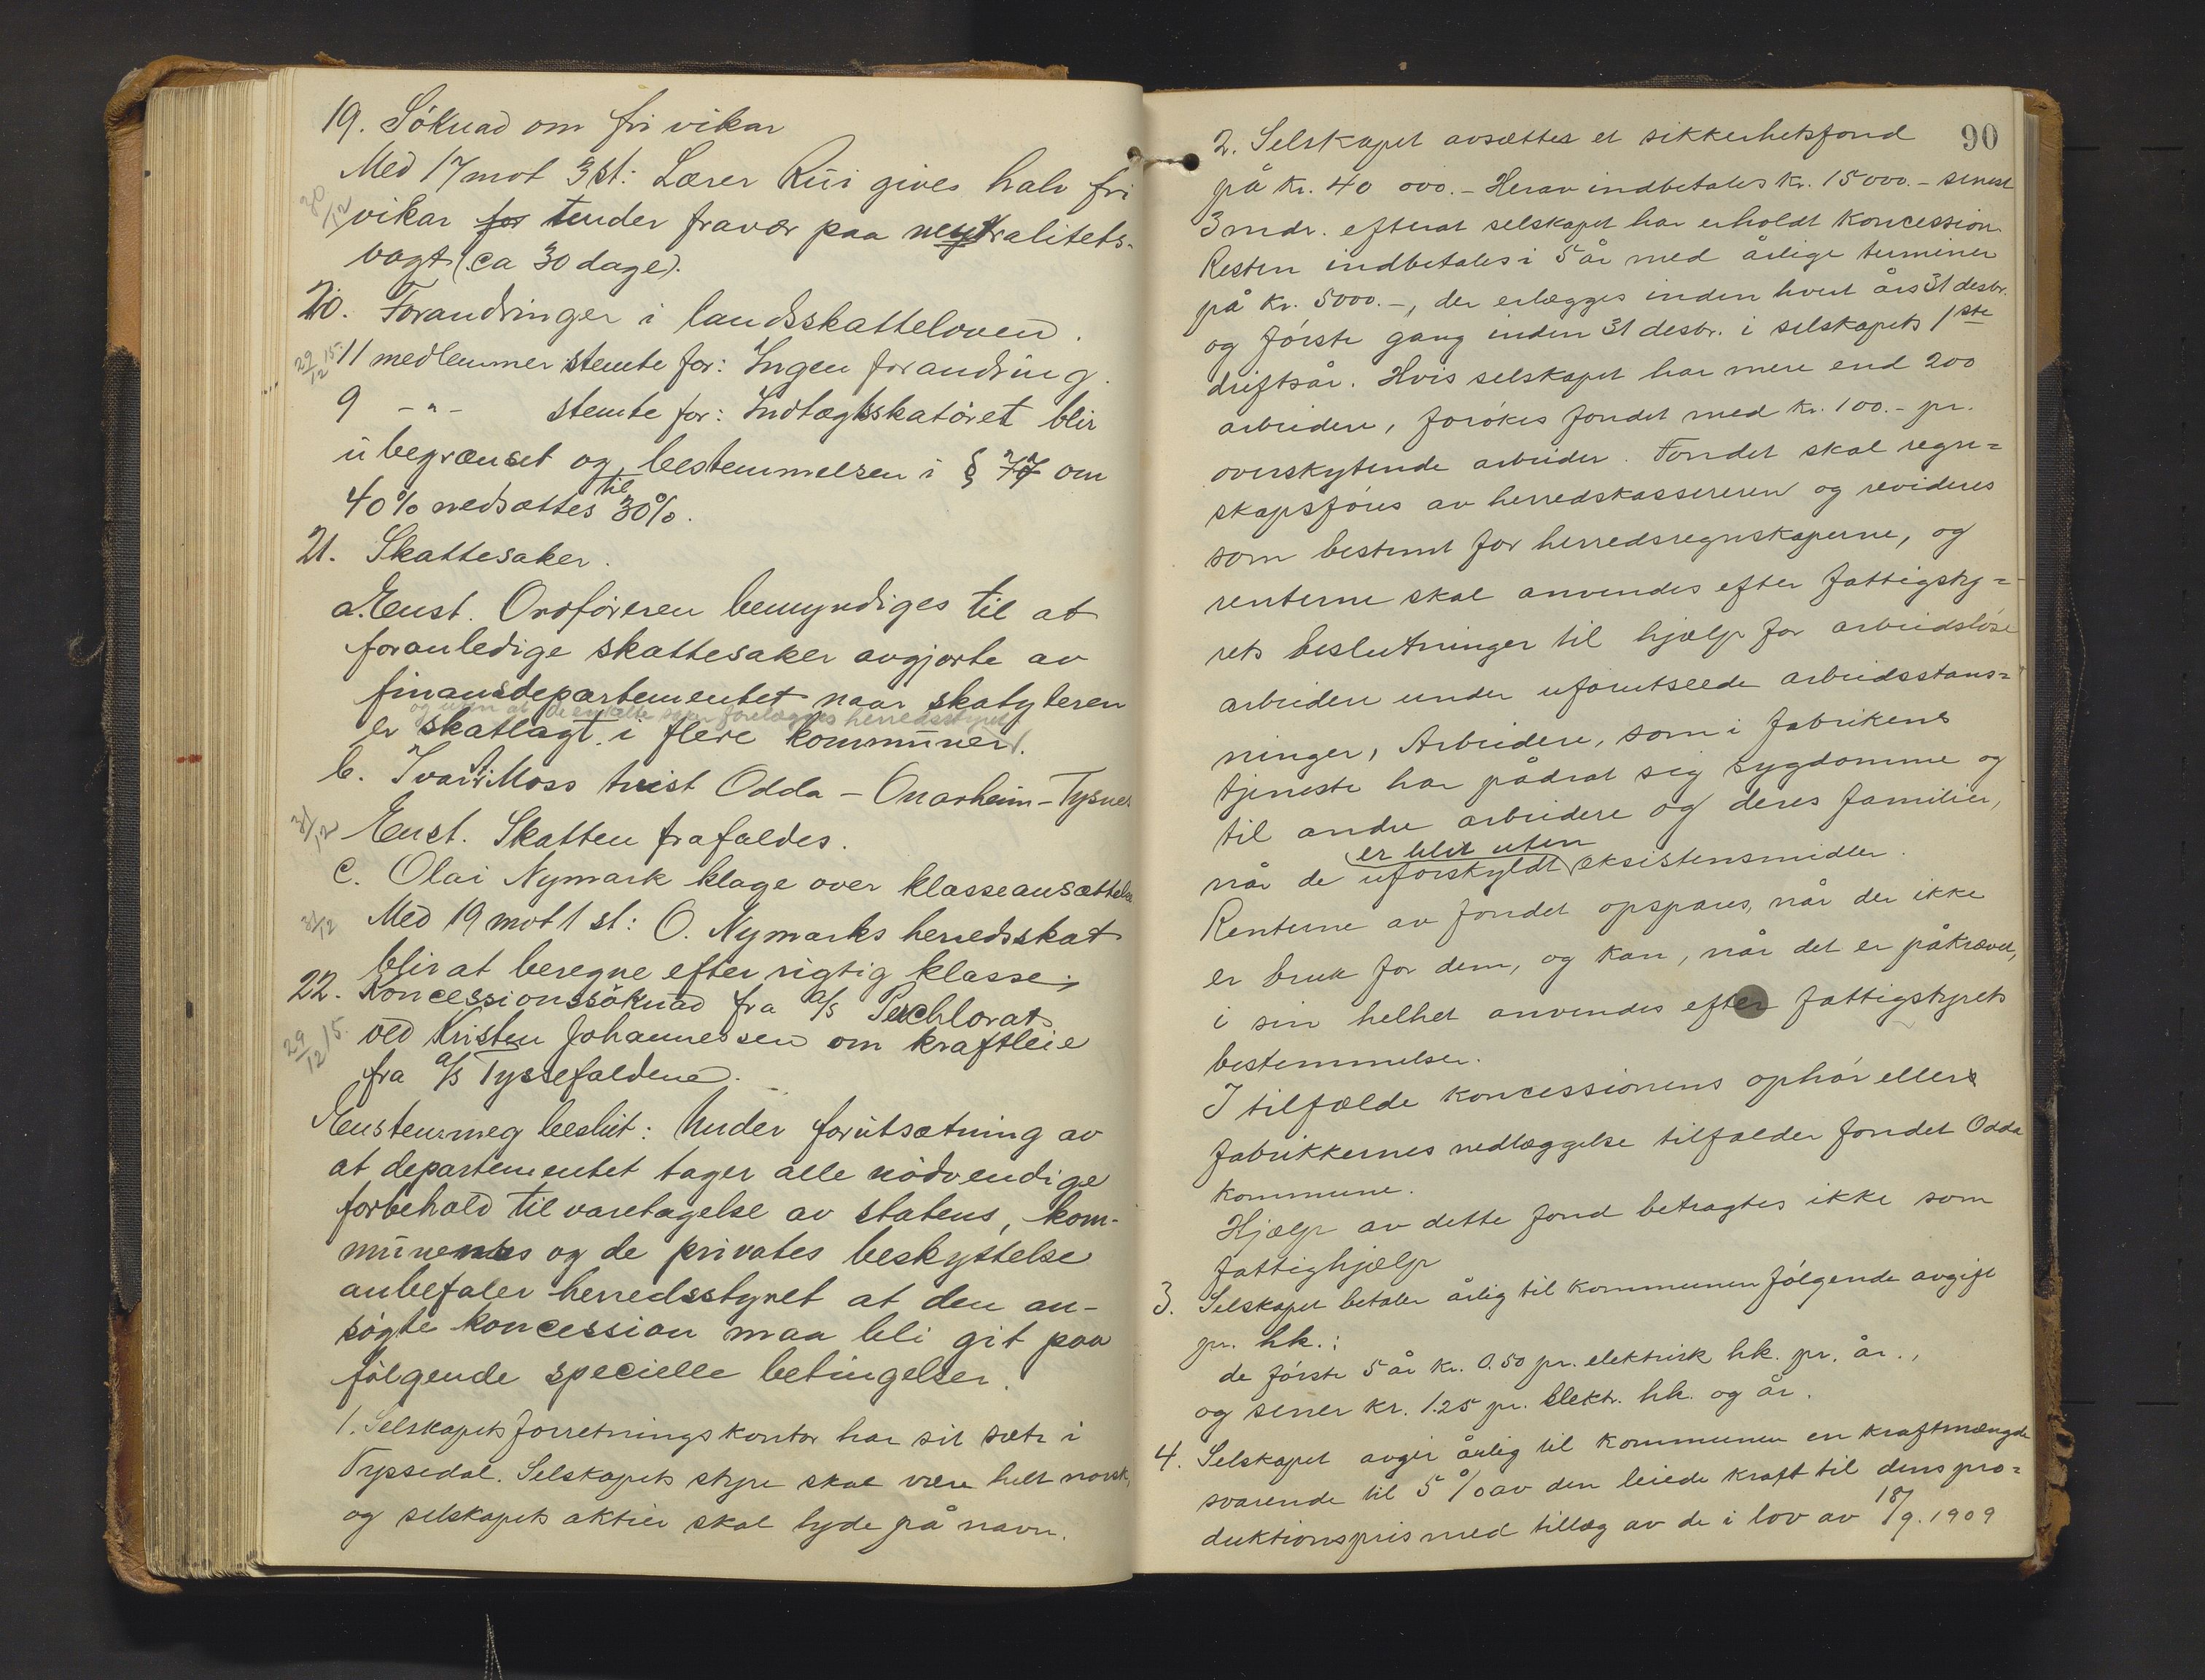 19. Søknad om fri vikar
Med 17 mot 3 st: Lærer Rui gives halv fri
30/12 vikar for under fravær paa neytralitets-
vagt (ca 30 dage).
20. Forandringer i landsskatteloven.
29/12 15. 11 medlemmer stemte for: Ingen forandring.
9 -"- stemte for: Indtægtsskatøret blir
ubegrænset og bestemmelsen i § 77 om
40% nedsættes til 30%.
21. Skattesaker.
a. Enst. Ordføreren bemyndiges til at
foranledige skattesaker avgjorte av
finansdepartementet naar skatyteren
og uten at de enkelte saker forelægges herredsstyret
er skatlagt i flere kommuner.
b. Ivar Moss tvist Odda – Onarheim – Tysnes
31/12 Enst. Skatten frafaldes.
c. Olai Nymark klage over klasseansættelse
31/12 Med 19 mot 1 st: O. Nymarks herredsskat
blir at beregne efter rigtig klasse.
22. Koncessionssøknad fra a/s Perchlorat
29/12 15. ved Kristen Johannessen om kraftleie
fra a/s Tyssefaldene.
Enstemmeg beslut: Under forutsætning av
at departementet tager alle nødvendige
forbehold til varetagelse av statens, kom-
munenes og de privates beskyttelse
anbefaler herredsstyret at den an-
søgte koncession maa bli git paa
følgende specielle betingelser.
1. Selskapets forretningskontor har sit sæte i
Tyssedal. Selskapets styre skal være helt norsk,
og selskapets aktier skal lyde på navn.
90
2. Selskapet avsættes et sikkerhetsfond
på kr. 40 000.- Herav indbetales kr. 15000.- senest
3 mdr. efterat selskapet har erholdt koncession.
Resten indbetales i 5 år med årlige terminer
på kr. 5000.-, der erlægges inden hvert års 31 desbr.
og første gang inden 31 desbr. i selskapets 1ste
driftsår. Hvis selskapet har mere end 200
arbeidere, forøkes fondet med kr. 100.- pr.
overskytende arbeider. Fondet skal regn=
skapsføres av herredskassereren og revideres
som bestemt for herredsregnskaperne, og
renterne skal anvendes efter fattigsty=
rets beslutninger til hjælp for arbeidsløse
arbeidere under uforutseede arbeidsstans=
ninger, Arbeidere, som i fabrikens
tjeneste har pådrat sig sygdomme og
til andre arbeidere og deres familier,
er blit uten
når de uforskyldt eksistensmidler.
Renterne av fondet opspares, når der ikke
er bruk for dem, og kan, når det er påkrævet,
i sin helhet anvendes efter fattigstyrets
bestemmelser.
I tilfælde koncessionens ophør eller
fabrikkernes nedlæggelse tilfalder fondet Odda
kommune.
Hjælp av dette fond betragtes ikke som
fattighjælp
3. Selskapet betaler årlig til kommunen følgende avgift
pr. hk.:
de første 5 år kr. 0.50 pr. elektrisk hk. pr. år.,
og senere kr. 1.25 pr. elektr. hk. og år.
4. Selskapet avgir årlig til kommunen en kraftmængde
svarende til 5 % av den leiede kraft til dens pro=
duktionspris med tillæg av de i lov av 18/9. 1909